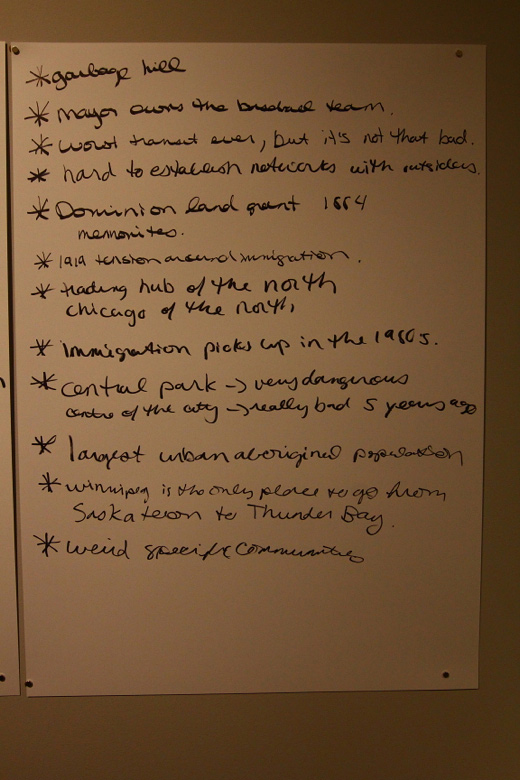 *garbage hill
*mayor owns the baseball team.
*worst transit ever, but it's not that bad.
*hard to establish networks with outsiders.
*Dominion land grant 1864
menonites.
*1919 tension around immigration.
*trading hub of the north
chicago of the north,
*immigration picks up in the 1960s.
*central park -> very dangerous
centre of the city -> really bad 5 years ago
*largest urban aboriginal population
*winnipeg is the only place to go from
Saskatoon to Thunder Bay.
*weird specific communities